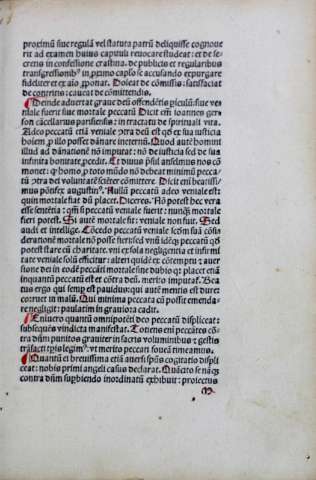 proximū siue regulā vel statuta patrū deliquisse cognoue
rit ad examen huius capituli reuocare studeat: et de se
crenis in confessione crastina. de publicis et regularibus
transgressionibꝰ in ꝓximo caplo se accusando expurgare
fideliter et ex aīo ꝓponat. Doleat de cōmissis: satisfaciat
de contritus: caueat de cōmittendis.
Deinde aduertat graue deū offendētis piculū siue ve
niale fuerit siue mortale peccatū Dicit eni ioannes ger
son cācellarius parisiensis: in tractatu de spirituali vita.
Adeo peccatū etiā veniale ꝯtra deū est qđ ex sua iusticia
hoiem ꝓ illo posset dānare ineternū. Quod autē homini
illud ad dānationē nō imputat: nō de iusticia sed de sua
infinita bonitate ꝓcedit. Et diuus ipsū anselmus nos cō
monet: ꝙ homo ꝓ toto mūdo nō debeat minimū pecca
tū ꝯtra dei voluntatē sciēter cōmittere Dicit eni beatissi
mus pōtifex augustinꝰ. Nullū peccatū adeo veniale est
quin mortale fiat dū placet. Diceres. Nō potest hec vera
esse sentētia: qm̄ si peccatū veniale fuerit: nunqͣ mortale
fieri potest. Si autē mortale fit: veniale non fuit. Sed
audi et intellige. Cōcedo peccatū veniale scdm sua cōsi
derationē mortale nō posse fieri sed vnū idēqꝫ peccatū qđ
potest stare cū charitate. vni ex sola negligentia et infirmi
tate veniale solū efficitur: alteri quidē ex cōtemptu et auer
sione dei in codē peccāti mortale sine dubio qꝫ placet etiā
inquantū peccatū est et cōtra deū. merito imputat. Be
atus ergo qui semp est pauidus: qui autē mentis est dure
corruet in malū. Qui minima peccata cū possit emenda
re negligit: paulatim in grauiora cadit.
Eniuero quantū omnipotēti deo peccatū displiceat:
subsequēs vindicta manifestat. Totiens eni peccātes cō
tra dūm punitos grauiter in sacris voluminibus et gestis
trāsacti tp̄is legimꝰ. vt merito peccari fouea timeamus.
Quantū et breuissima etiā auersi spūs cogitatio displi
ceat: nobis primi angeli casus declarat. Quācito se nāqꝫ
contra dūm supbiendo inordinatū exhibuit: proiectus